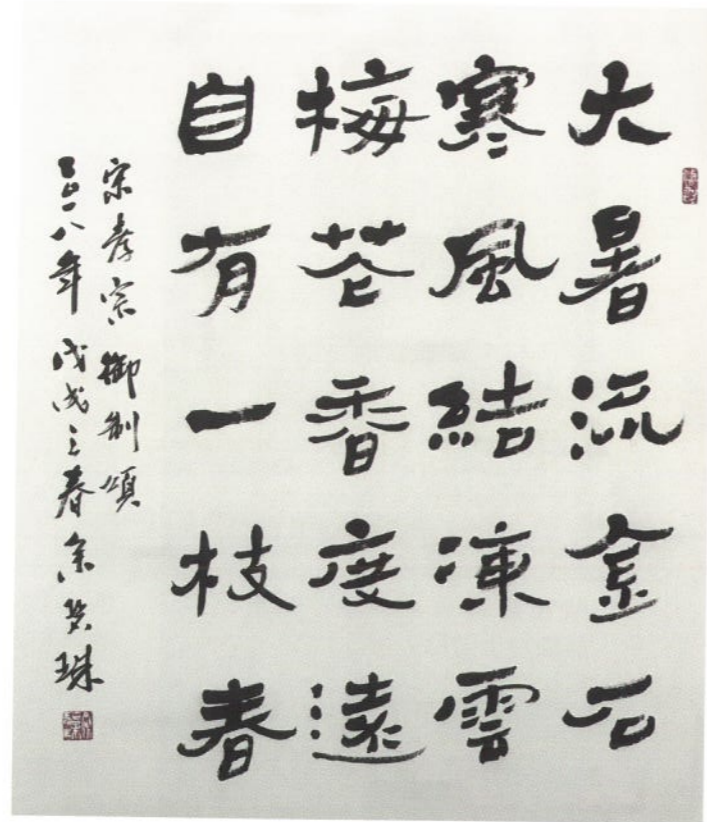 大暑流金石
寒風結凍雲
梅花香度遠
自有一枝春
宋孝宗御制頌
二〇一八年戊戌之春余 珠